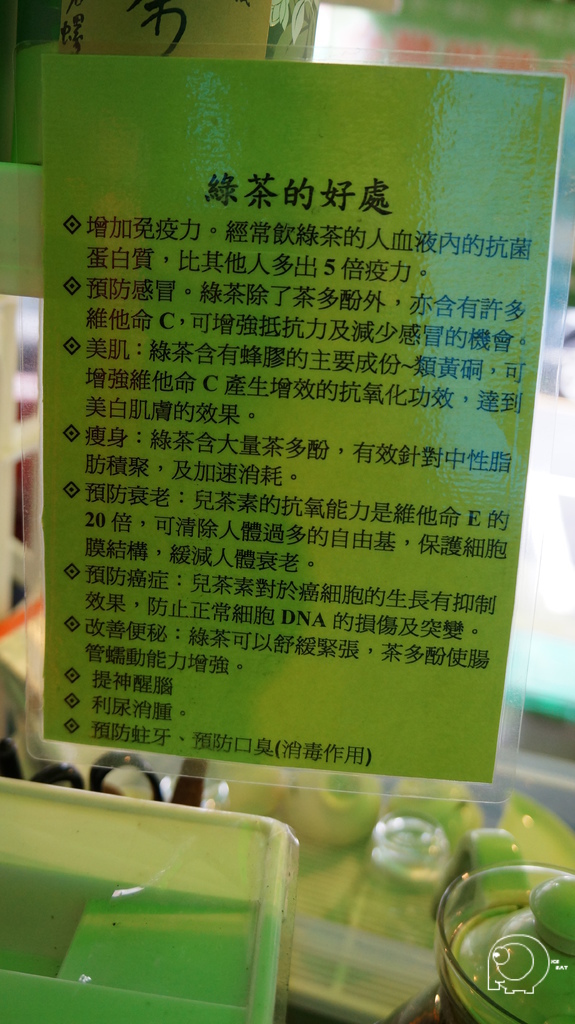 綠茶的好處
增加免疫力。經常飲綠茶的人血液內的抗菌
蛋白質，比其他人多出 5 倍疫力。
預防感冒。綠茶除了茶多酚外，亦含有許多
維他命 C，可增強抵抗力及減少感冒的機會。
美肌：綠茶含有蜂膠的主要成份~類黃硐，可
增強維他命 C 產生增效的抗氧化功效，達到
美白肌膚的效果。
瘦身：綠茶含大量茶多酚，有效針對中性脂
肪積聚，及加速消耗。
預防衰老：兒茶素的抗氧能力是維他命 E 的
20 倍，可清除人體過多的自由基，保護細胞
膜結構，緩減人體衰老。
預防癌症：兒茶素對於癌細胞的生長有抑制
效果，防止正常細胞 DNA 的損傷及突變。
改善便秘：綠茶可以舒緩緊張，茶多酚使腸
管蠕動能力增強。
提神醒腦
利尿消腫。
預防蛀牙、預防口臭(消毒作用)